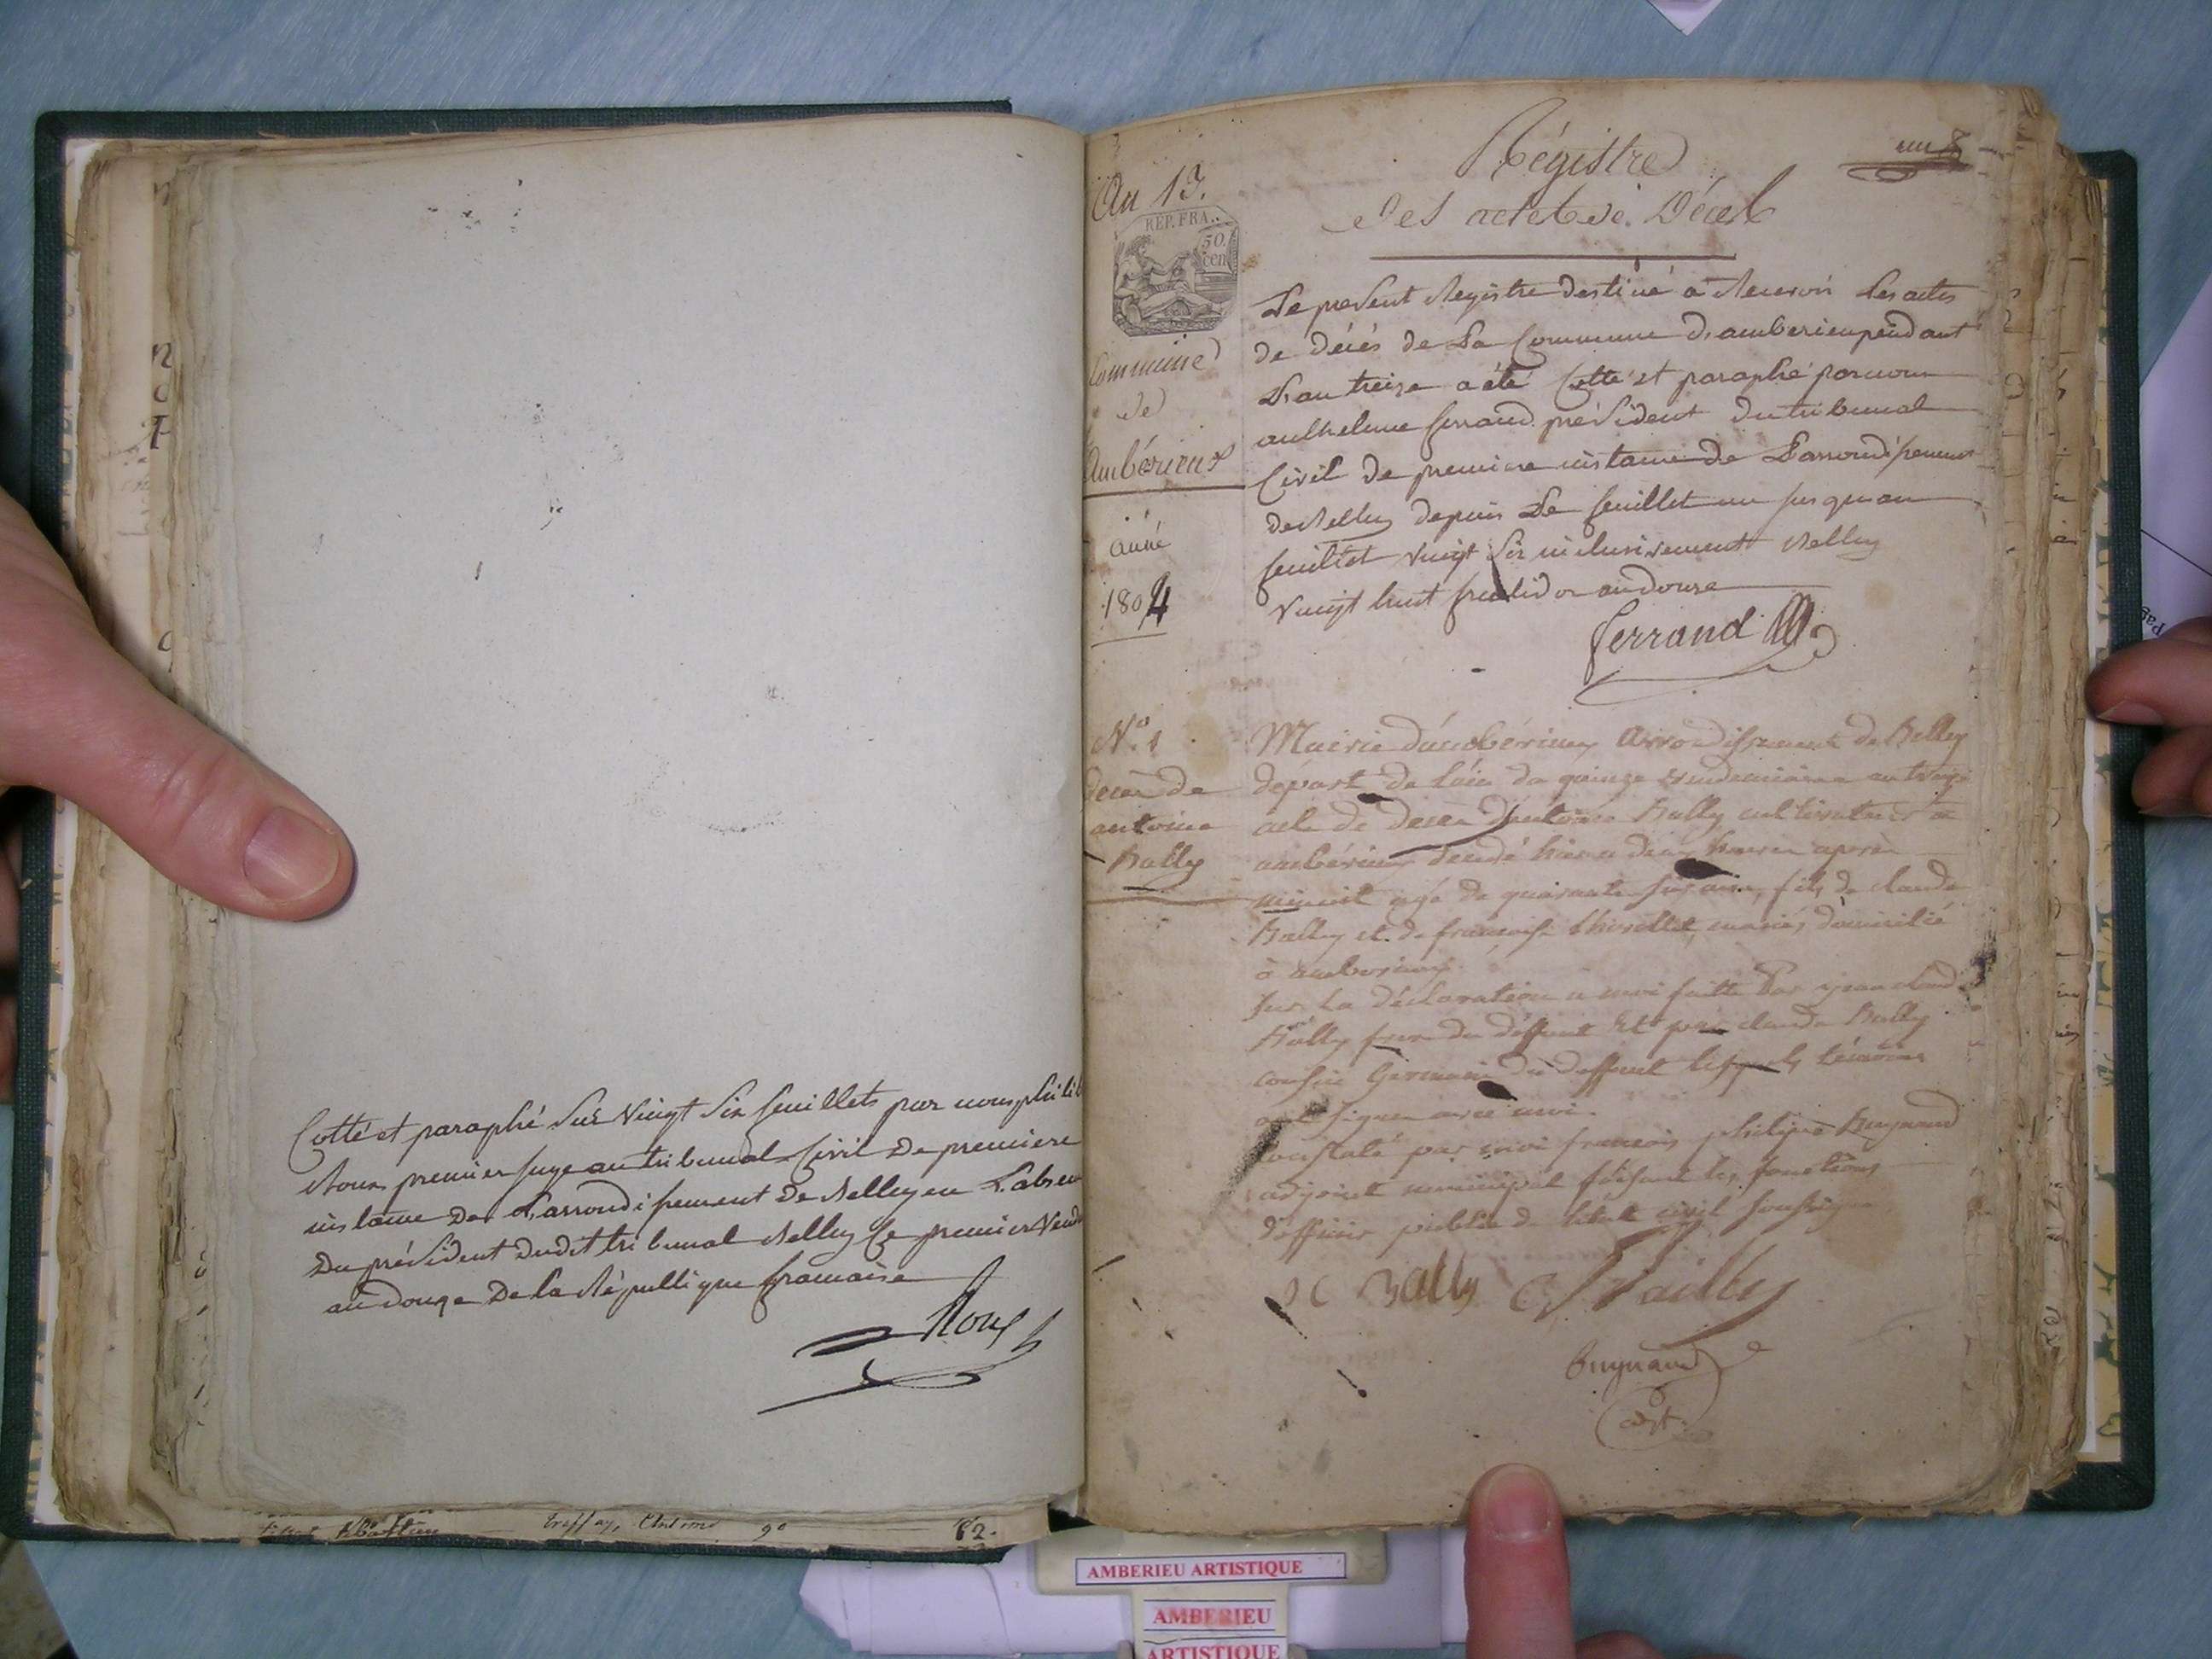 Cotté et paraphé sur vingt six feuillets par nous
Roux premier juge au tribunal Civil de premiere
instance de L'arrondissement de Belley en L'absen
du président dudit tribunal Belley le premier vend
an douze de la République francaise
Roux
82.
An 13.
REP. FRA.
50
cen
Commune
de
Ambérieux
année
1804
Régistre
des actes de Décès
Le present Registre destiné à Recevoir Les actes
de décès de La Commune d'amberieu pendant
L'an treize a été Cotté et paraphé par nous
anthelme ferrand président du tribunal
Civil de premiere instance de L'arrondissement
de Belley depuis Le feuillet un jusquau
feuillet vingt six inclusivement Belley
vingt huit fructidor an douze
ferrand
N.° 1
decès de
antoine
Bally
Mairie d'ambérieux arrondissement de Belley
départ. de l'ain du quinze vendemiaire an treize
acte de decès d'antoine Bally cultivateur a
ambérieux decedé hier a deux heures après
minuit agé de quarante six ans, fils de claude
Bally et de francoise mariés domicilié
à amberieux
sur la déclaration a moi faitte par jean claude
Bally frere du deffunt et par claude Bally
cousin Germain du deffunt lesquels témoins
ont signé avec moi.
Constaté par moi francois philipe Buynand
adjoint municipal faisant les fonctions
d'officier public de l'état civil soussigné
J C Bally C Bailly
Buynand
adjt.
AMBERIEU ARTISTIQUE
AMBERIEU
ARTISTIQUE